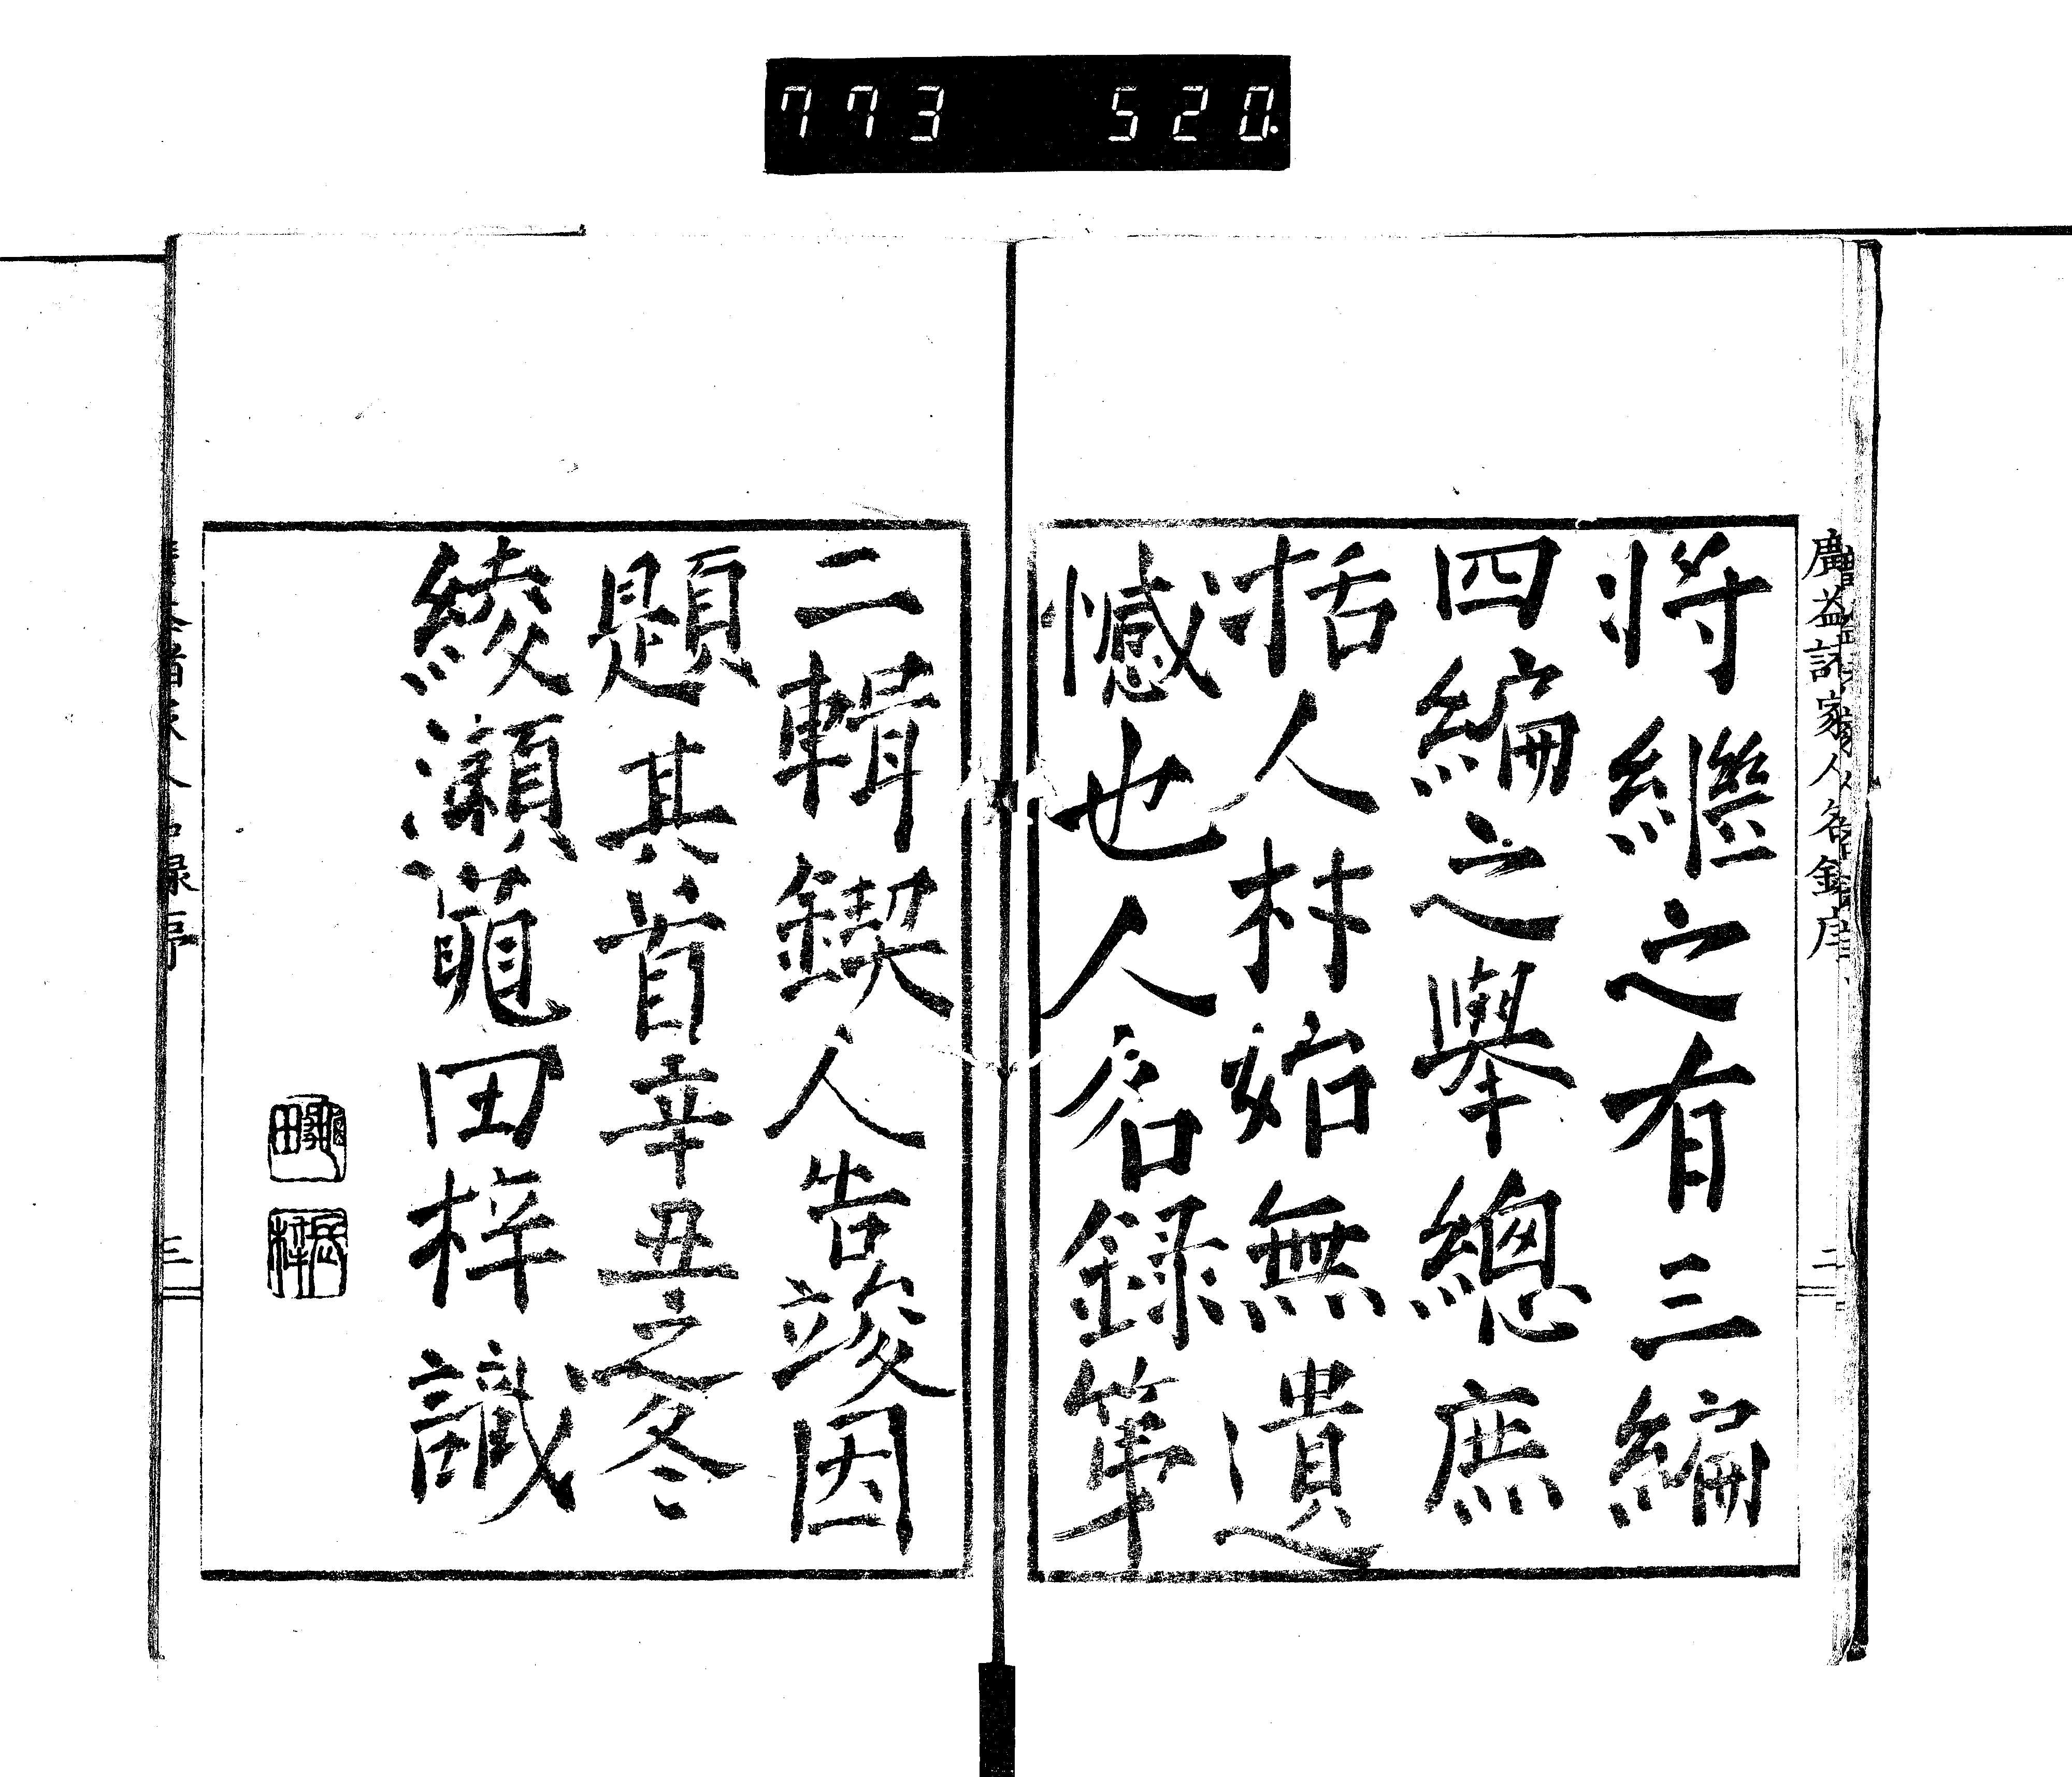 773 520.
廣益諸家人名録序
二
将繼之有三編
四編之舉總庶
括人材始無遺
憾也人名録第
二輯鍥人告竣因
題其首辛丑之冬
綾瀬龜田梓識
三